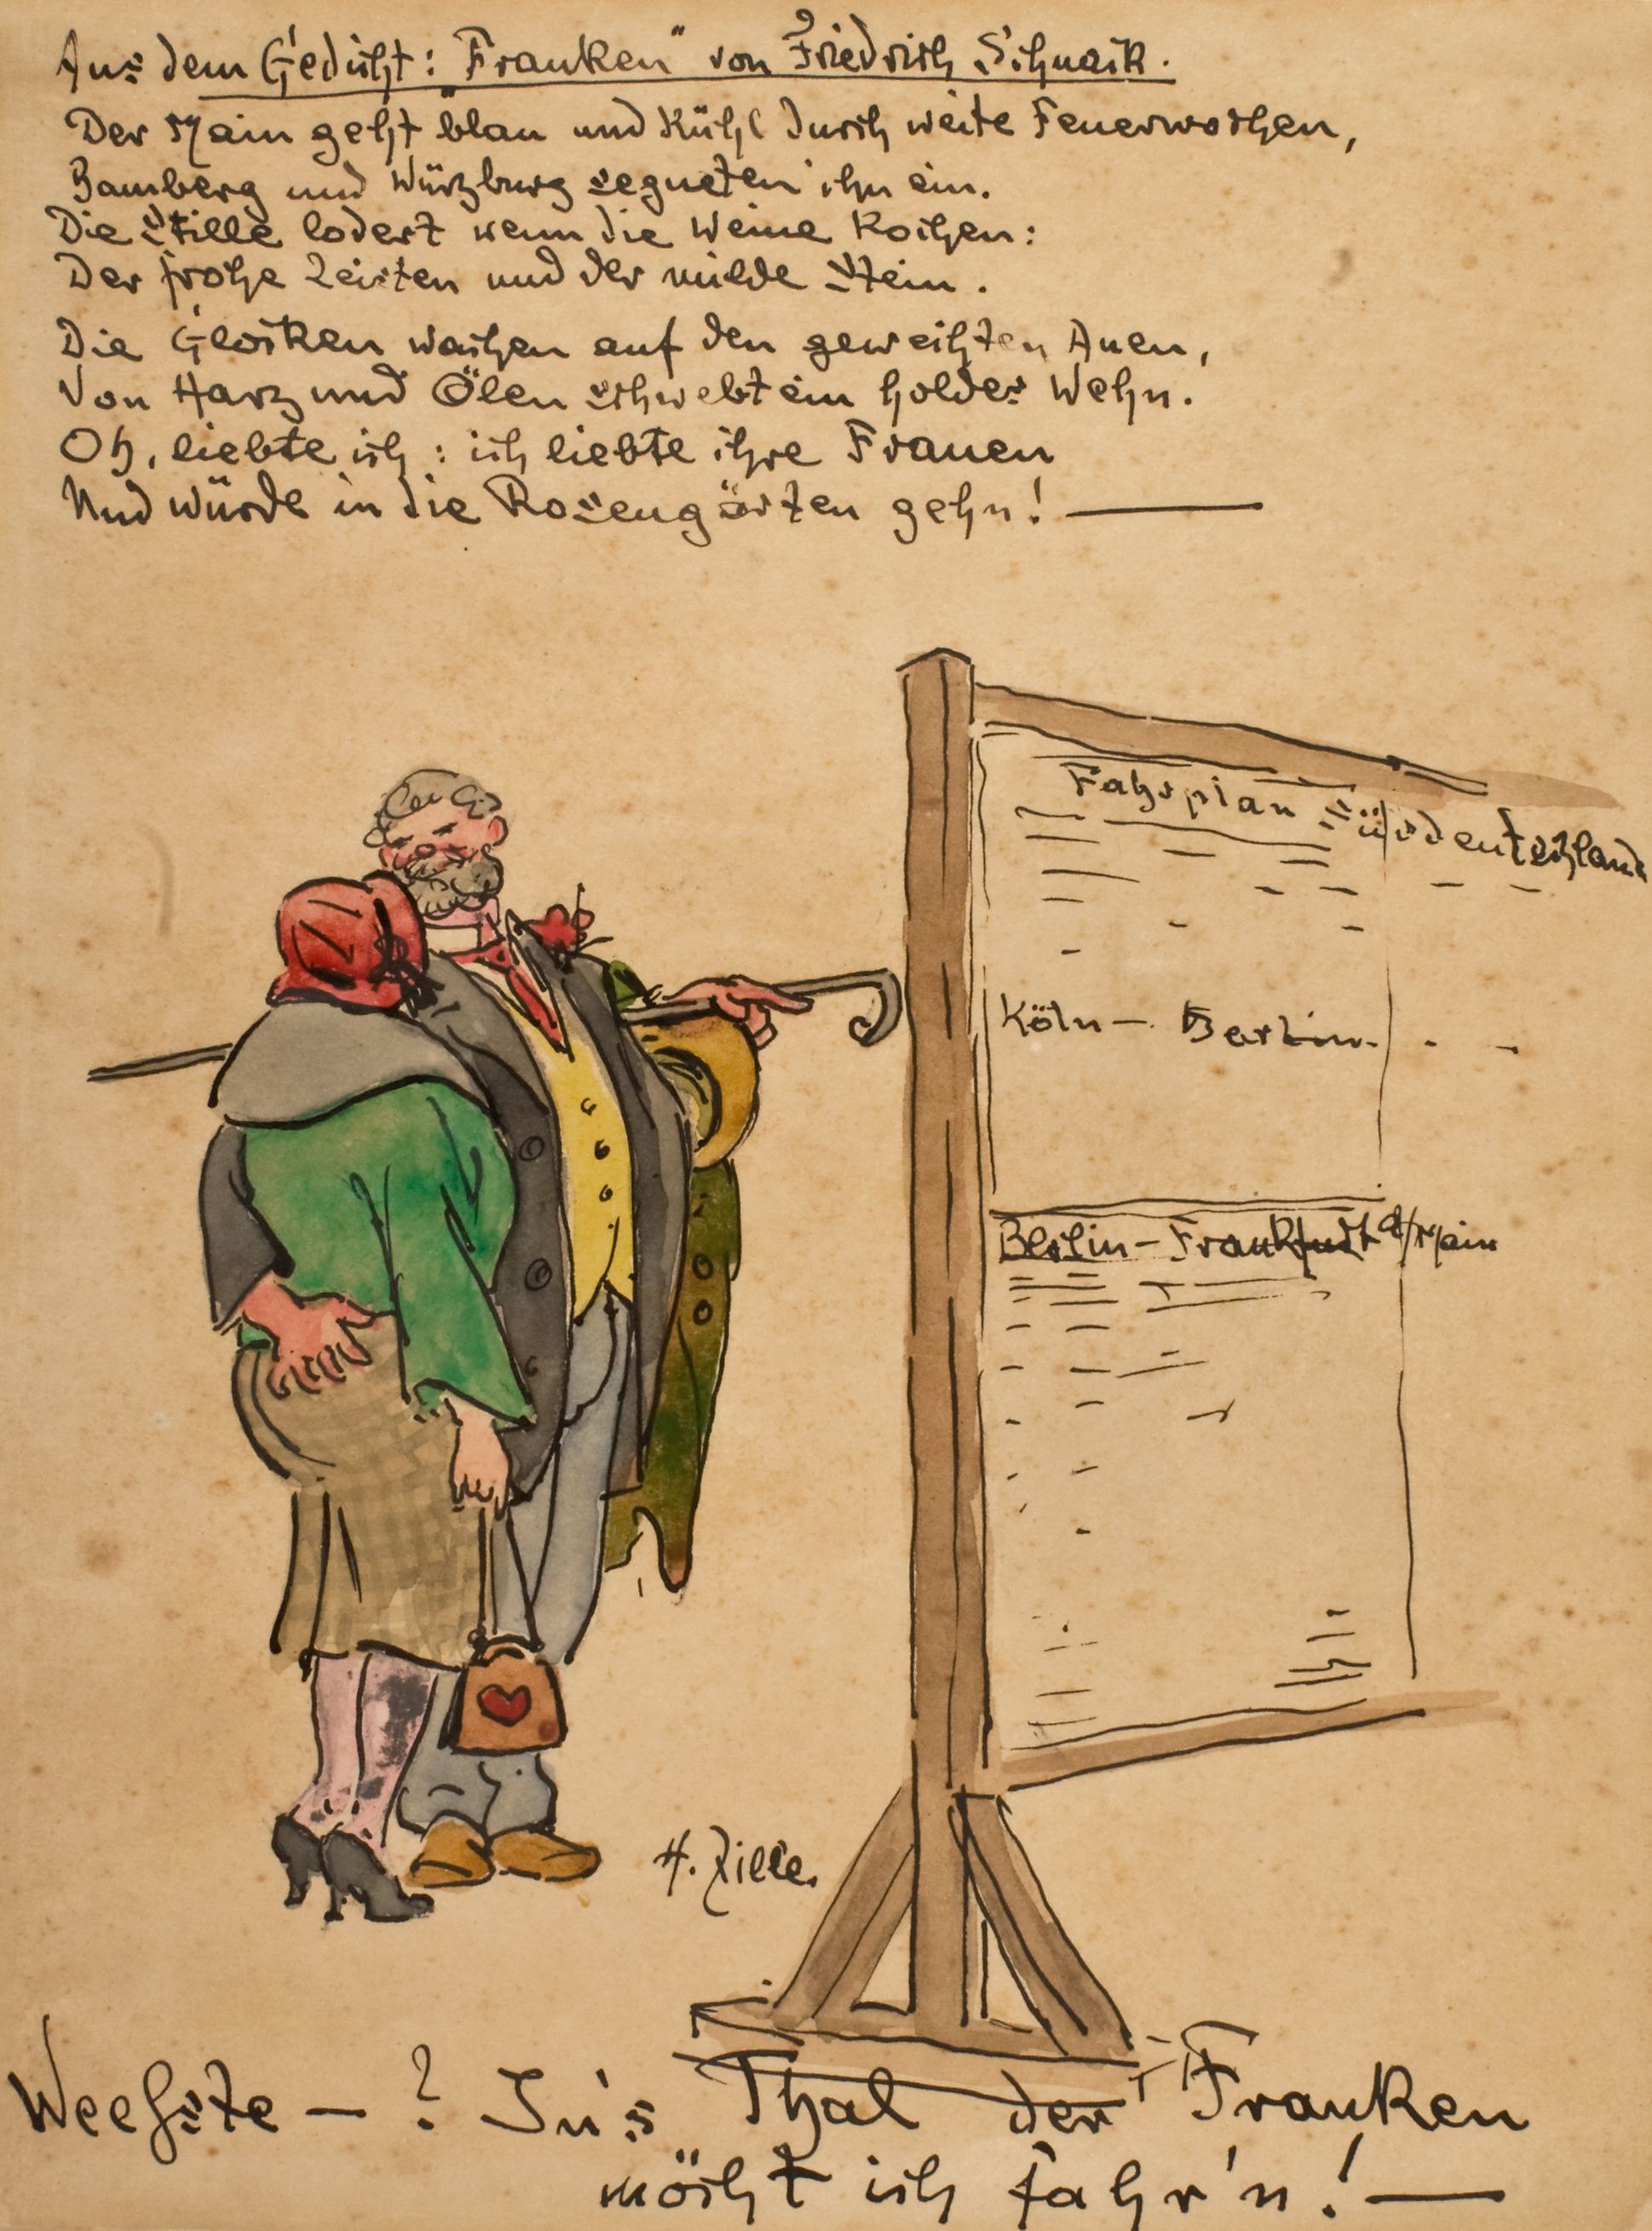 Aus dem Gedicht: "Franken" von Friedrich Schnack.
Der Main geht blau und kühl durch weite Feuerwochen,
Bamberg und Würzburg segneten ihn ein.
Die Stille lodert wenn die Weine kochen:
Der frohe Leisten und der milde Stein.
Die Glocken wachen auf den geweihten Auen,
Von Harz und Ölen schwebt ein holdes Wehn.
Oh, liebte ich: ich liebte ihre Frauen
Und würde in die Rosengärten gehn! —
Fahrplan Süddeutschland
Köln — Berlin.
Berlin - Frankfurt a/Main
H. Zille.
Weeßste — ? In's Thal der Franken
möcht ich fahr'n! —